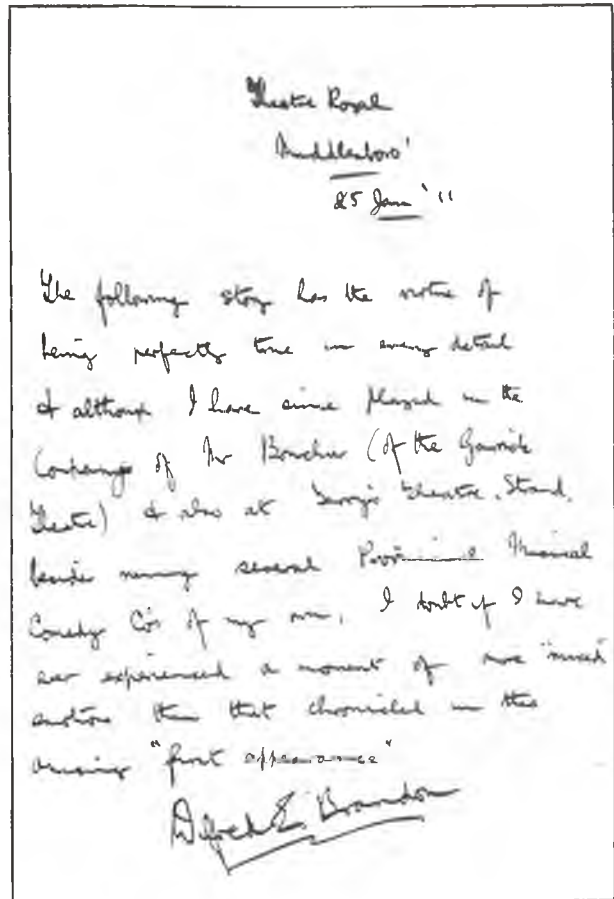 Theatre Royal
Middlesboro'
25 Jan '11
The following story has the virtue of
being perfectly true in every detail
& although I have since played in the
Company of Mr Bourchier (of the Garrick
Theatre) & also at Terry's Theatre, Strand,
beside running several Provincial Musical
Comedy Co's of my own, I doubt if I have
ever experienced a moment of more "mixed
emotions than that chronicled in this
amusing "first appearance"
Alfred E. Brandon